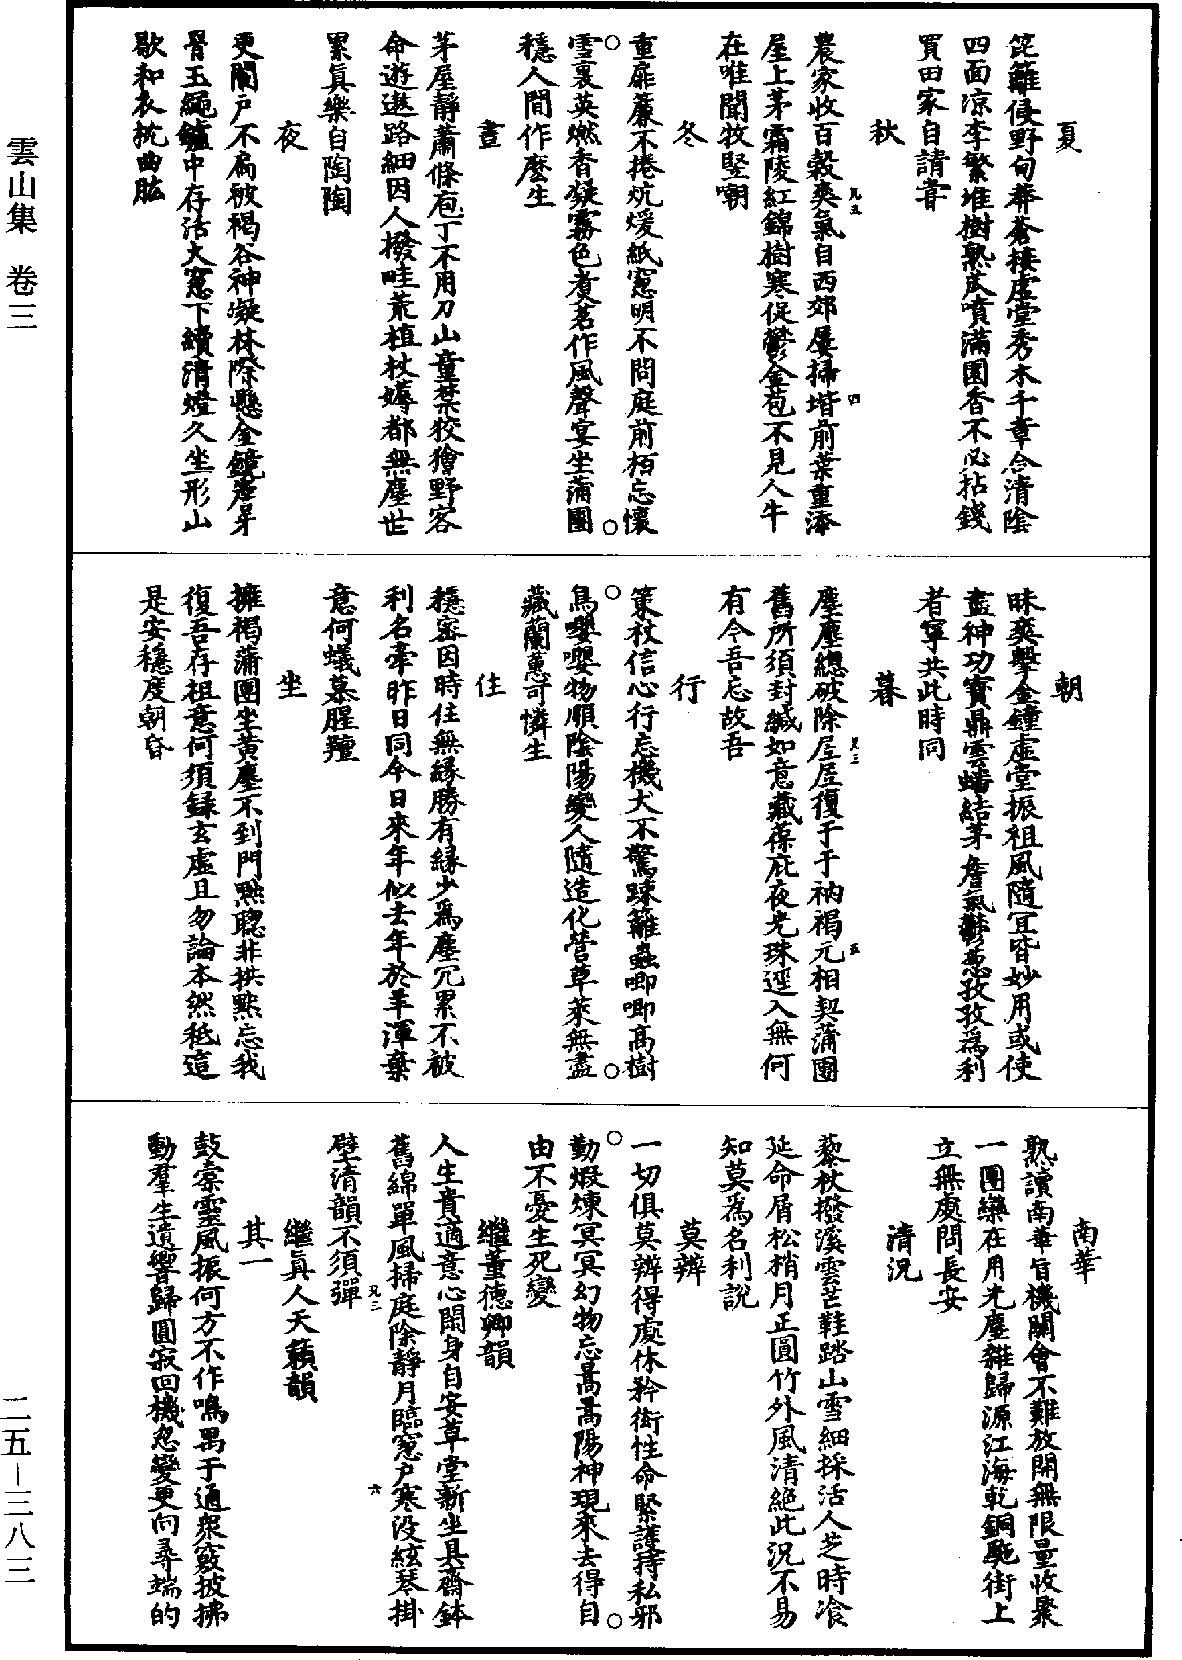 雲山集　卷三
二五－三八三
夏
笓籬侵野旬莽蒼接虛堂秀木千章合清陰
四面凉李繁堆樹熟瓜噴滿園香不必拈錢
買田家自請甞
秋
農家收百穀爽氣自西郊屢掃堦前葉重添
屋上茅霜陵紅錦樹寒促鬱金苞不見人牛
在唯聞牧竪嘲
冬
重扉簾不捲炕煖紙窻明不問庭前栢忘懷
雪裏英燃香凝霧色煮茗作風聲宴坐蒲團
穩人間作麽生
晝
茅屋靜蕭條庖丁不用刀山童禁狡獪野客
命遊遨路細因人撥畦荒植杖薅都無塵世
累眞樂自陶陶
夜
更闌戶不扃被褐谷神凝林際懸金鏡簷牙
骨玉繩鑪中存活火窻下續清燈久坐形山
歇和衣枕曲肱
朝
昧爽擊金鐘虛堂振祖風隨宜皆妙用或使
盡神功寶鼎雲蟠結茅詹氣鬱葱孜孜爲利
者寧共此時同
暮
塵塵總破除㞐㞐復于于衲褐元相契蒲團
舊所須封緘如意藏葆庇夜光珠逕入無何
有今吾忘故吾
行
策杖信心行忘機犬不驚踈籬蟲唧唧高樹
鳥嚶嚶物順陰陽變人隨造化營草萊無盡
藏蘭蕙可憐生
住
穩審因時住無緣勝有緣少爲塵冗累不被
利名牽昨日同今日來年似去年於羊渾棄
意何蟻慕腥羶
坐
擁褐蒲團坐黃塵不到門黜聰非拱默忘我
復吾存祖意何須錄玄虛且勿論本然秪這
是安穩度朝昏
南華
熟讀南華旨機關會不難放開無限量收聚
一團欒在用光塵雜歸源江海乾銅駞街上
立無處問長安
清况
藜杖撥溪雲芒鞋踏山雪細採活人芝時飡
延命屑松梢月正圓竹外風清絶此况不易
知莫爲名利說
莫辨
一切俱莫辨得處休矜衒性命緊護持私邪
勤煆煉冥冥幻物忘暠暠陽神現來去得自
由不憂生死變
繼董德卿韻
人生貴適意心閑身自安草堂新坐具齋鉢
舊綿單風掃庭除靜月臨窻户寒没絃琴掛
壁清韻不須彈
繼眞人天籟韻
其一
鼓橐靈風振何方不作鳴喁于通衆竅披拂
動羣生遺響歸圓寂回機忽變更向尋端的